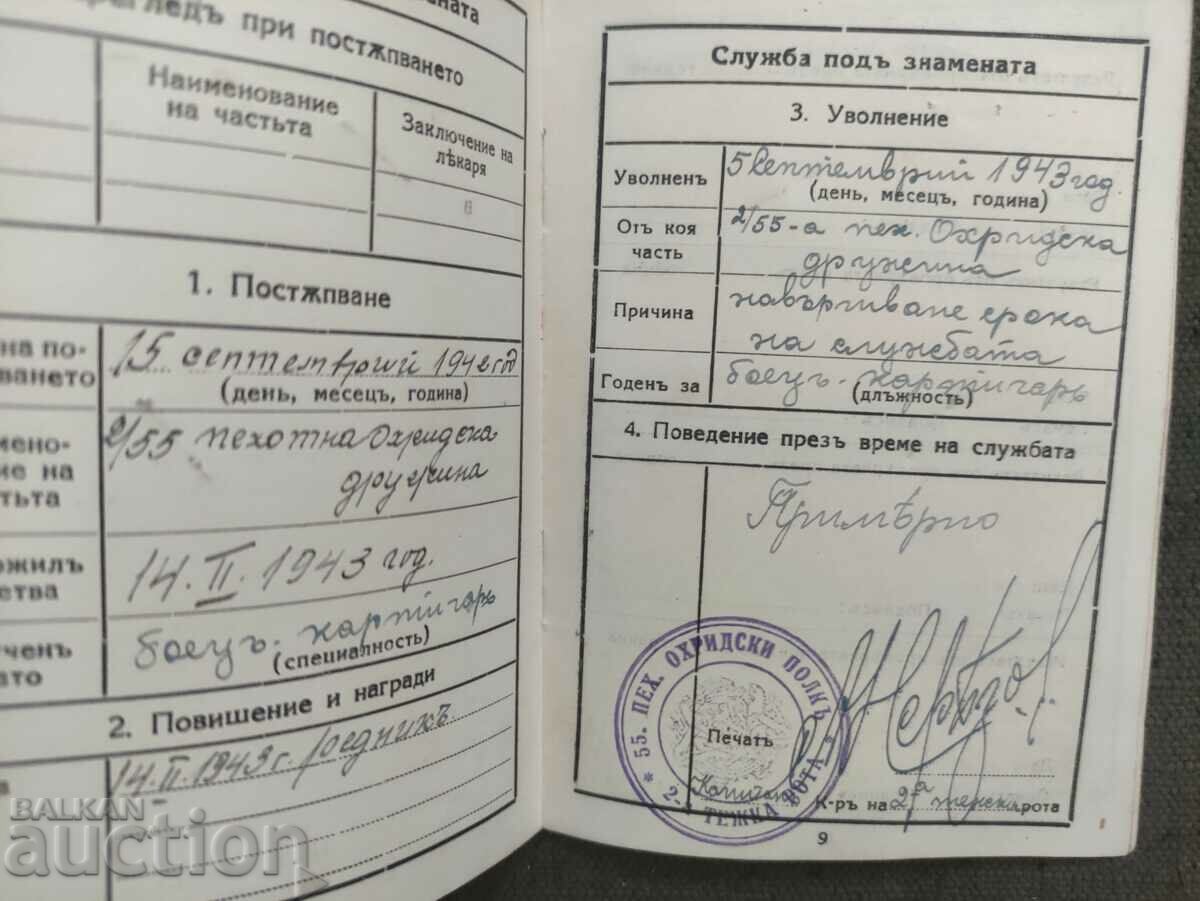 ената
прегледъ при постѫпването
Наименование
на частьта
Заключение на
лѣкаря
1. Постѫпване
на по-
ването
15 септемврий 1942 год
(день, месецъ, година)
мено-
ие на
тьта
2/55 пехотна Охридска
дружина
ожилъ
ства
14. II. 1943 год.
ченъ
ато
боецъ-
(специалность)
2. Повишение и награди
14-II-1943 г. редникъ
Служба подъ знамената
3. Уволнение
Уволненъ
5 септемврий 1943 год.
(день, месецъ, година)
Отъ коя
часть
2/55-а пех. Охридска
дружина
Причина
навършване срока
на службата
Годенъ за
боецъ-
(длъжность)
4. Поведение презъ време на службата
Примѣрно
* 55. ПЕХ. ОХРИДСКИ ПОЛКЪ *
2- ТЕЖКА РОТА
Печатъ
Капитан
К-ръ на 2-а рота
9
BALKAN
auction